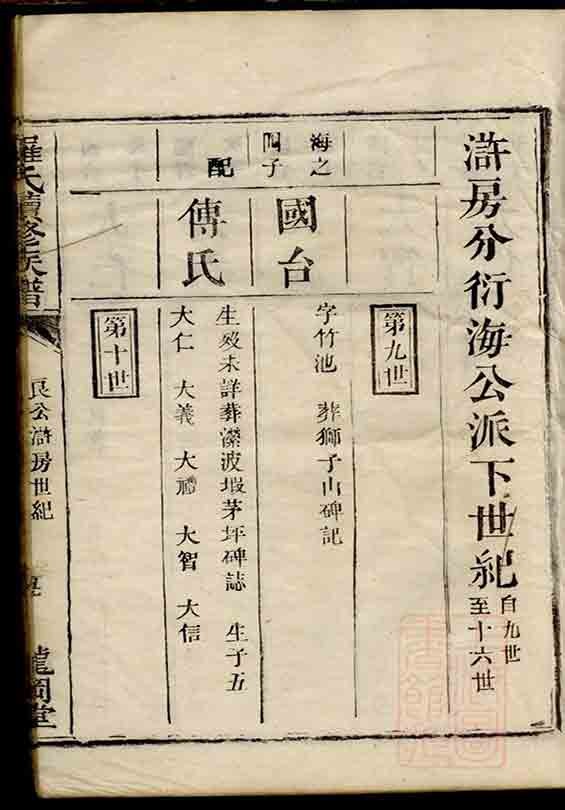 滸房分衍海公派下世紀自九世至十六世
第九世
海之四子
國台
字竹池 葬獅子山碑記
配
傅氏
生歿未詳葬濴波塅茅坪碑誌 生子五
大仁 大義 大禮 大智 大信
第十世
羅氏續修族譜
良公滸房世紀
龍岡堂